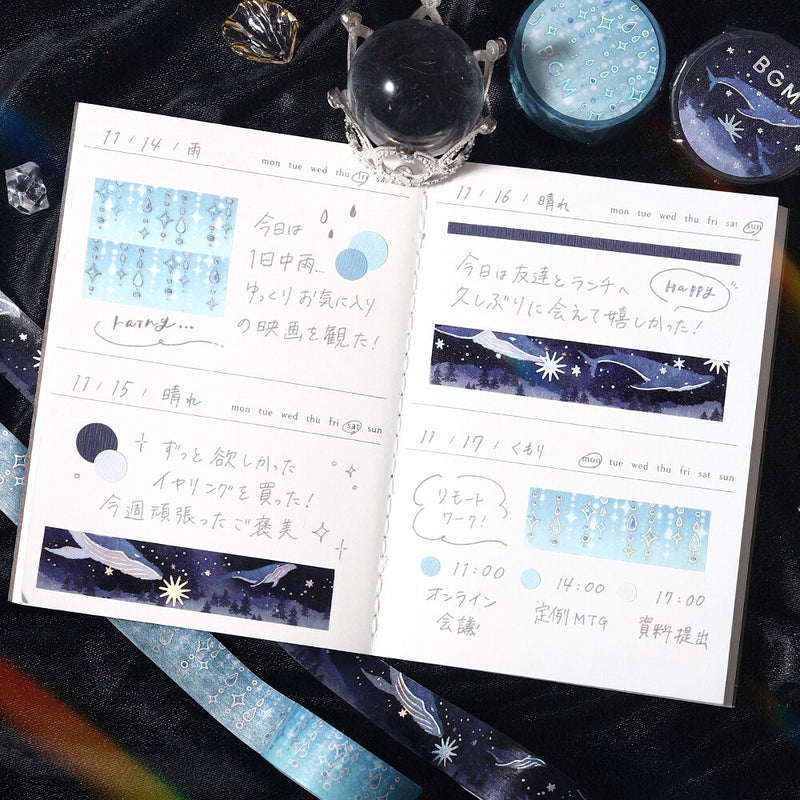 BGM
BGM
11 / 14 / 雨
mon tue wed thu fri sat
今日は
1日中雨...
ゆっくりお気に入り
の映画を観た!
rainy...
11 / 15 / 晴れ
mon tue wed thu fri sat sun
ずっと欲しかった
イヤリングを買った!
今週頑張ったご褒美
11 / 16 / 晴れ
mon tue wed thu fri sat sun
今日は友達とランチへ
久しぶりに会えて嬉しかった!
Happy
11 / 17 / くもり
mon tue wed thu fri sat sun
リモート
ワーク!
11:00
オンライン
会議
14:00
定例MTG
17:00
資料提出